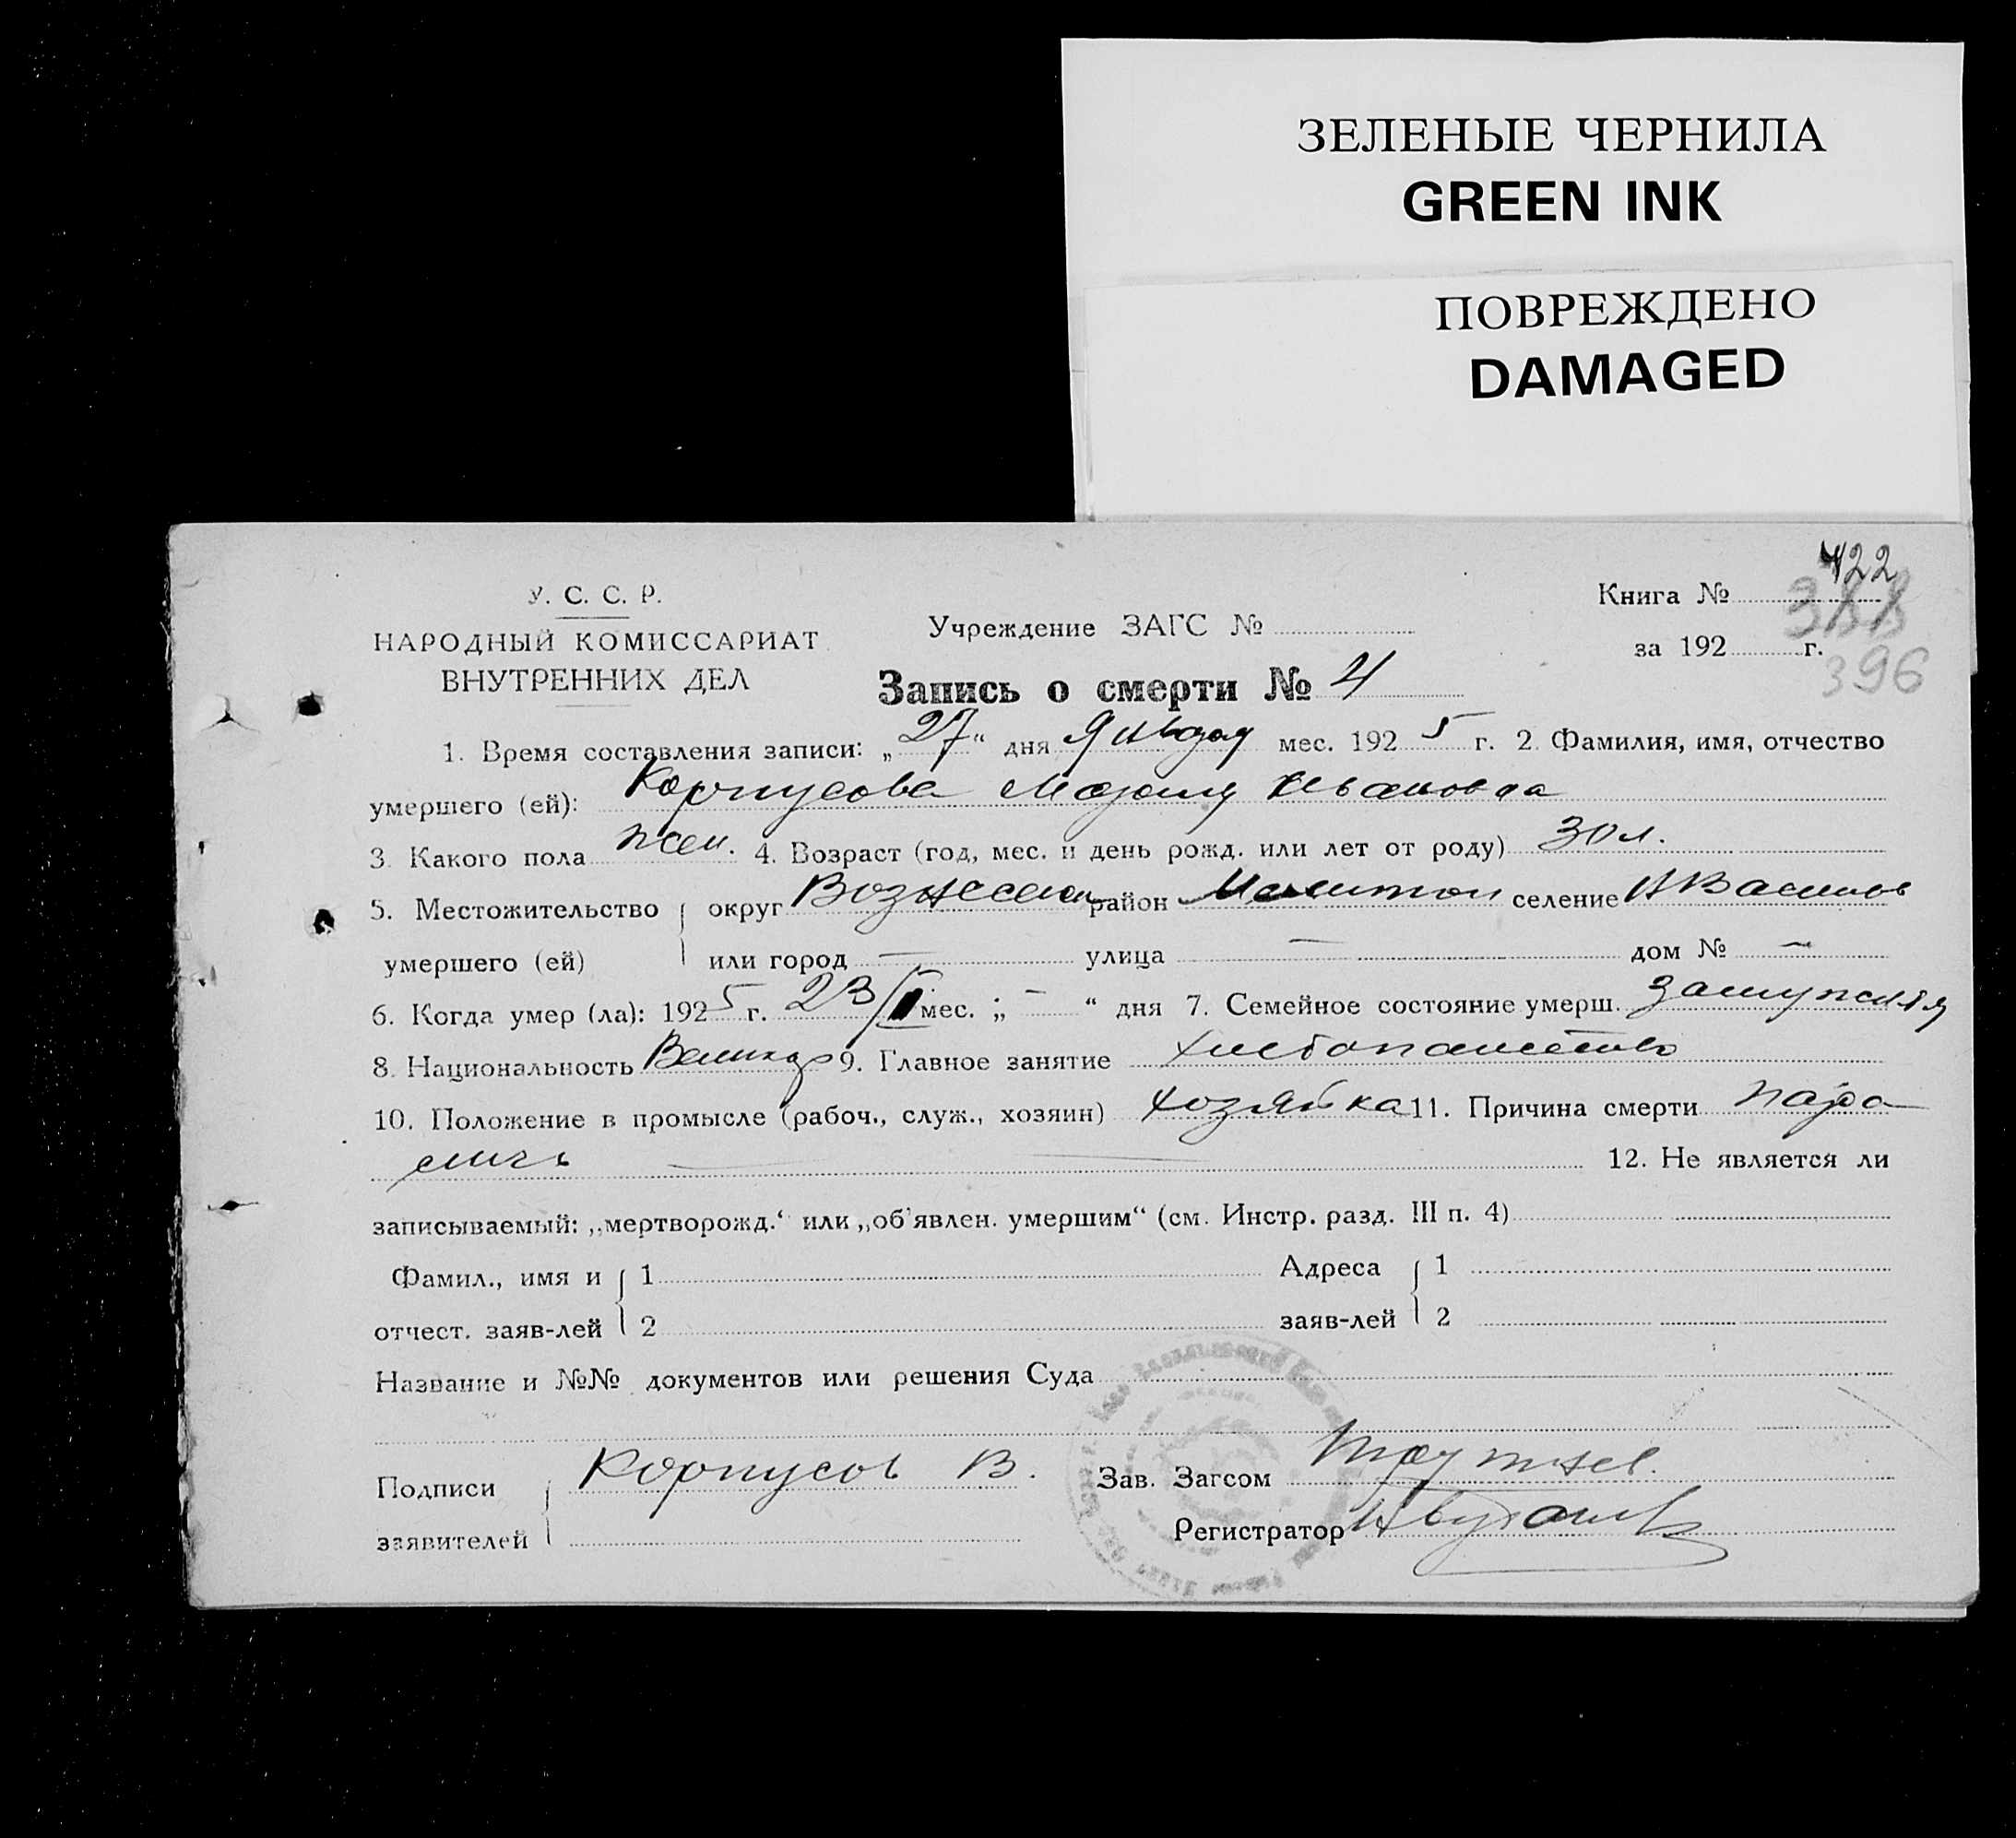 ЗЕЛЕНЫЕ ЧЕРНИЛА
GREEN INK
ПОВРЕЖДЕНО
DAMAGED
У. С. С. Р.
НАРОДНЫЙ КОМИССАРИАТ
ВНУТРЕННИХ ДЕЛ
Учреждение ЗАГС №
Запись о смерти № 4
422
Книга № 388
за 192 г.
396
1. Время составления записи: „27“ дня Января мес. 1925 г. 2. Фамилия, имя, отчество
умершего (ей): Корпусова Мария Ивановна
3. Какого пола жен. 4. Возраст (год, мес. и день рожд. или лет от роду) 30 л.
5. Местожительство округ Вознесен район селение
умершего (ей) или город — улица — дом № —
6. Когда умер (ла): 1925 г. 23/I мес. „—“ дня 7. Семейное состояние умерш. Замужняя
8. Национальность Великор 9. Главное занятие Хлебопашество
10. Положение в промысле (рабоч., служ., хозяин) хозяйка 11. Причина смерти пара
личь — — 12. Не является ли
записываемый: „мертворожд.“ или „об'явлен. умершим“ (см. Инстр. разд. III п. 4)
Фамил., имя и 1 Адреса 1
отчест. заяв-лей 2 заяв-лей 2
Название и №№ документов или решения Суда
Подписи Корпусов В. Зав. Загсом
заявителей Регистратор